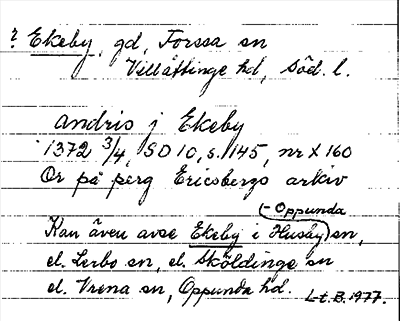 ? Ekeby, gd, Forssa sn
Villåttinge hd, Söd. l.
andris j Ekeby
1372 3/4, SD 10, s. 145, nr X 160
Or på perg Ericsbergs arkiv
(-Oppunda
Kan även avse Ekeby i Husby) sn,
el. Lerbo sn, el. Sköldinge sn
el. Vrena sn, Oppunda hd. L-t. B. 1977.